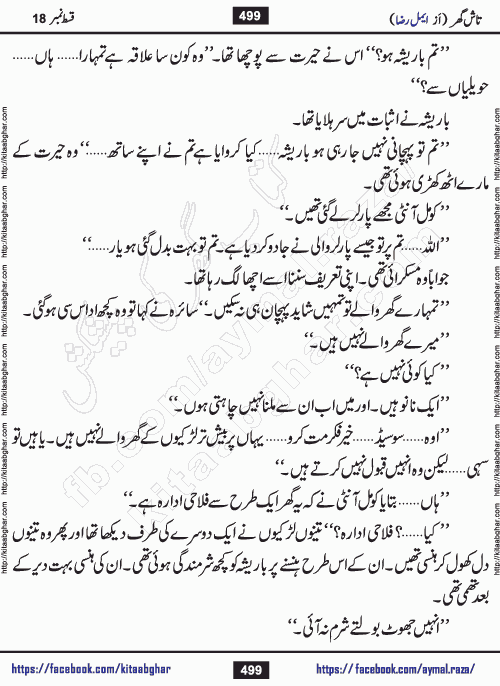 تاش گھر (از ایمل رضا) 499 قسط نمبر 18
’’تم باریشہ ہو؟‘‘ اس نے حیرت سے پوچھا تھا۔ ’’وہ کون سا علاقہ ہے تمہارا...... ہاں......
حویلیاں سے؟‘‘
باریشہ نے اثبات میں سر ہلایا تھا۔
’’تم تو پہچانی نہیں جا رہی ہو باریشہ...... کیا کروایا ہے تم نے اپنے ساتھ......‘‘ وہ حیرت کے
مارے اٹھ کھڑی ہوئی تھی۔
’’کومل آنٹی مجھے پارلر لے گئی تھیں۔‘‘
’’اللہ...... تم پر تو جیسے پارلر والی نے جادو کر دیا ہے۔ تم تو بہت بدل گئی ہو یار......‘‘
جواباً وہ مسکرائی تھی۔ اپنی تعریف سننا اسے اچھا لگ رہا تھا۔
’’تمہارے گھر والے تو تمہیں شاید پہچان ہی نہ سکیں۔‘‘ سائرہ نے کہا تو وہ کچھ اداس سی ہو گئی۔
’’میرے گھر والے نہیں ہیں۔‘‘
’’کیا کوئی نہیں ہے؟‘‘
’’ایک نانو ہیں۔ اور میں اب ان سے ملنا نہیں چاہتی ہوں۔‘‘
’’اوہ...... سو سیڈ...... خیر فکر مت کرو...... یہاں پر بیش تر لڑکیوں کے گھر والے نہیں ہیں۔ یا ہیں تو
سہی...... لیکن وہ انہیں قبول نہیں کرتے ہیں۔‘‘
’’ہاں...... بتایا کومل آنٹی نے کہ یہ گھر ایک طرح سے فلاحی ادارہ ہے۔‘‘
’’کیا......؟ فلاحی ادارہ؟‘‘ تینوں لڑکیوں نے ایک دوسرے کی طرف دیکھا تھا اور پھر وہ تینوں
دل کھول کر ہنسی تھیں۔ ان کے اس طرح ہنسنے پر باریشہ کو کچھ شرمندگی ہوئی تھی۔ ان کی ہنسی بہت دیر کے
بعد تھمی تھی۔
’’انہیں جھوٹ بولتے شرم نہ آئی۔‘‘
https://facebook.com/kitaabghar 499 https://facebook.com/aymal.raza/
http://kitaabghar.com http://kitaabghar.com http://kitaabghar.com http://kitaabghar.com http://kitaabghar.com http://kitaabghar.com
http://kitaabghar.com http://kitaabghar.com http://kitaabghar.com http://kitaabghar.com http://kitaabghar.com http://kitaabghar.com
کتاب گھر کی پیشکش
fb.com/aymal.raza
kitaabghar.com